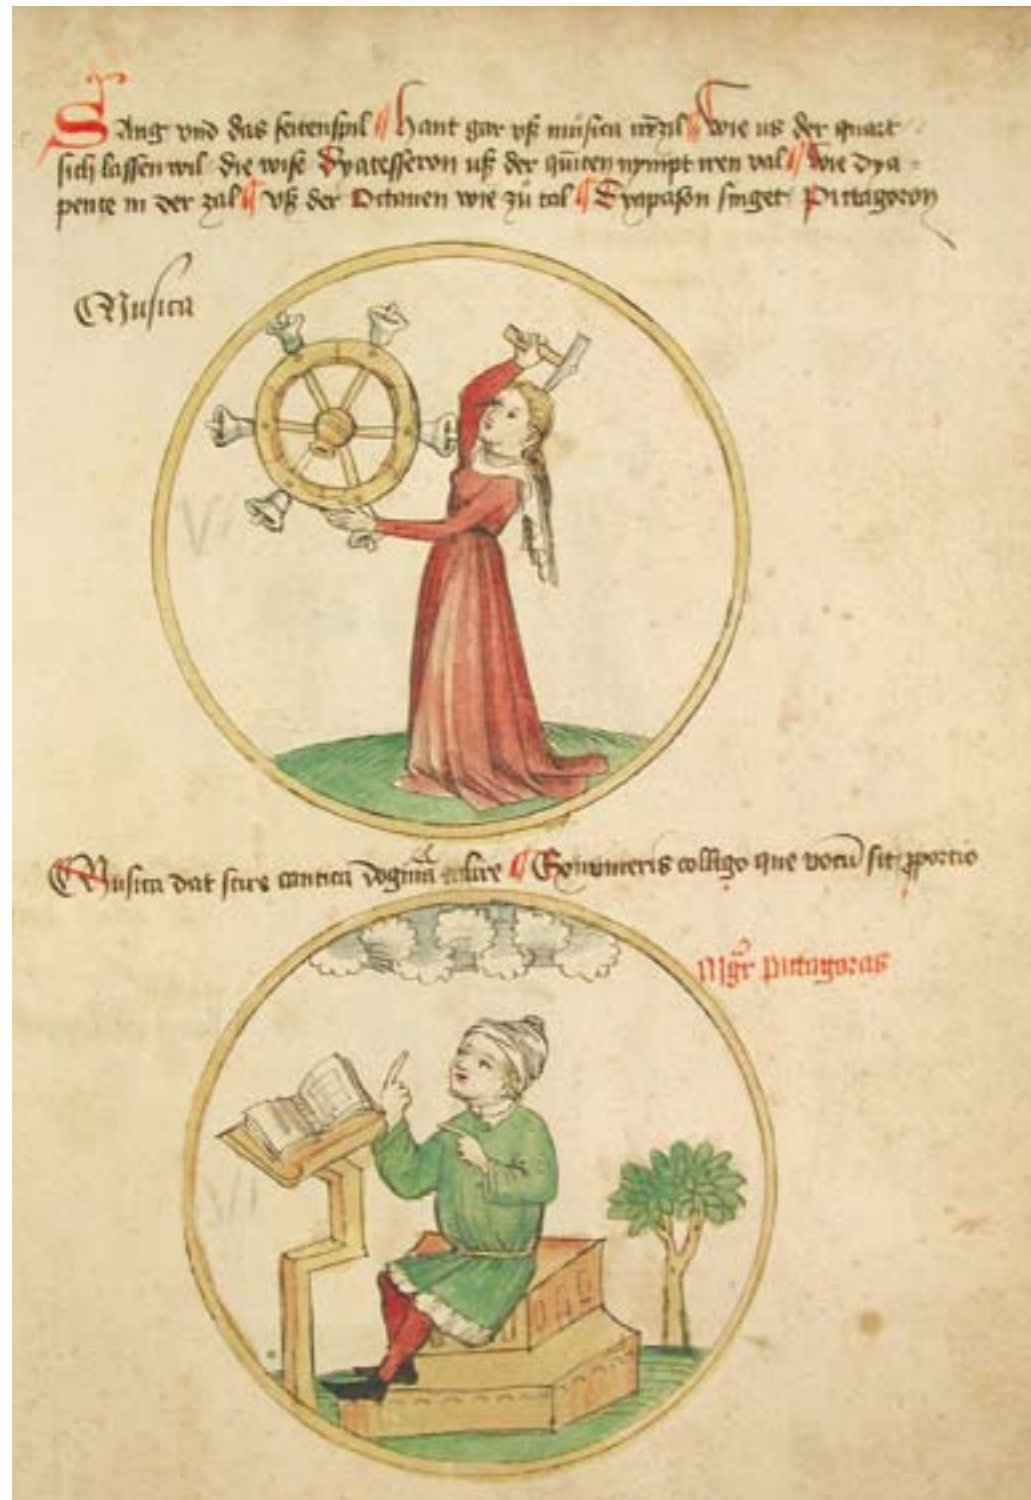 Sang vnd das seitenspil hant gar vß musica wie us der quart
sich lassen wil die wise Dyatesseron uß der quīten nympt iren val Wie dya=
pente in der zal vß der Octauen wie zů tal Dyapason singet Pittagoron
Musica
Musica dat scire cantica colligo que vocū sit ꝓportio
Mgr̄ pittagoras
VI
VI